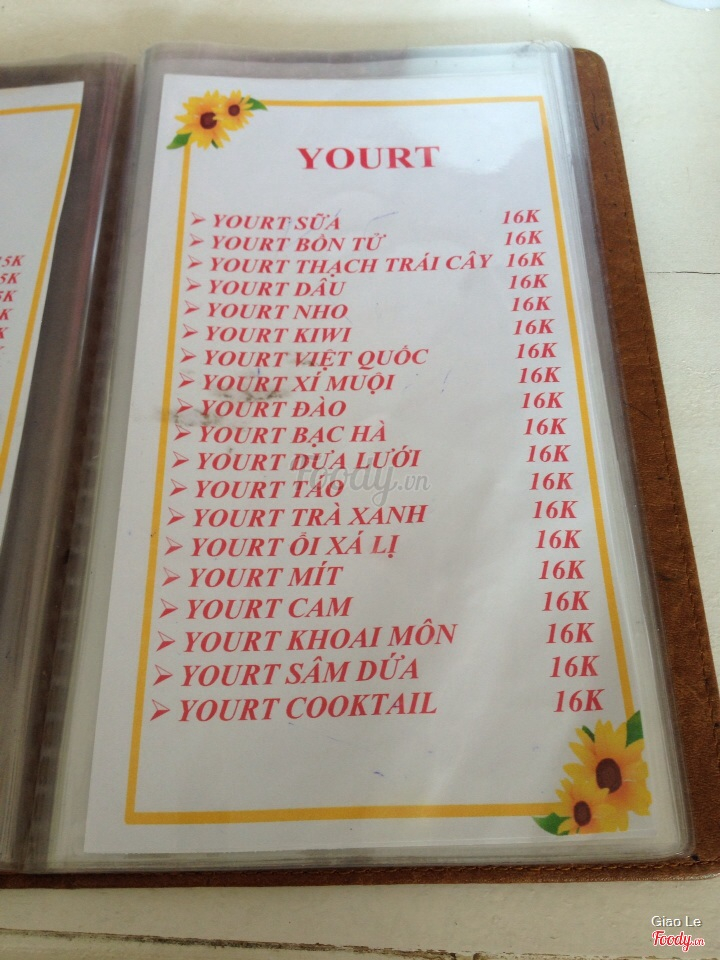 5K
5K
5K
K
K
YOURT
YOURT SỮA 16K
YOURT BỒN TỬ 16K
YOURT THẠCH TRÁI CÂY 16K
YOURT DÂU 16K
YOURT NHO 16K
YOURT KIWI 16K
YOURT VIỆT QUỐC 16K
YOURT XÍ MUỘI 16K
YOURT ĐÀO 16K
YOURT BẠC HÀ 16K
YOURT DƯA LƯỚI 16K
YOURT TÁO 16K
YOURT TRÀ XANH 16K
YOURT ỔI XÁ LỊ 16K
YOURT MÍT 16K
YOURT CAM 16K
YOURT KHOAI MÔN 16K
YOURT SÂM DỨA 16K
YOURT COOKTAIL 16K
Foody.vn
Giao Le
Foody.vn